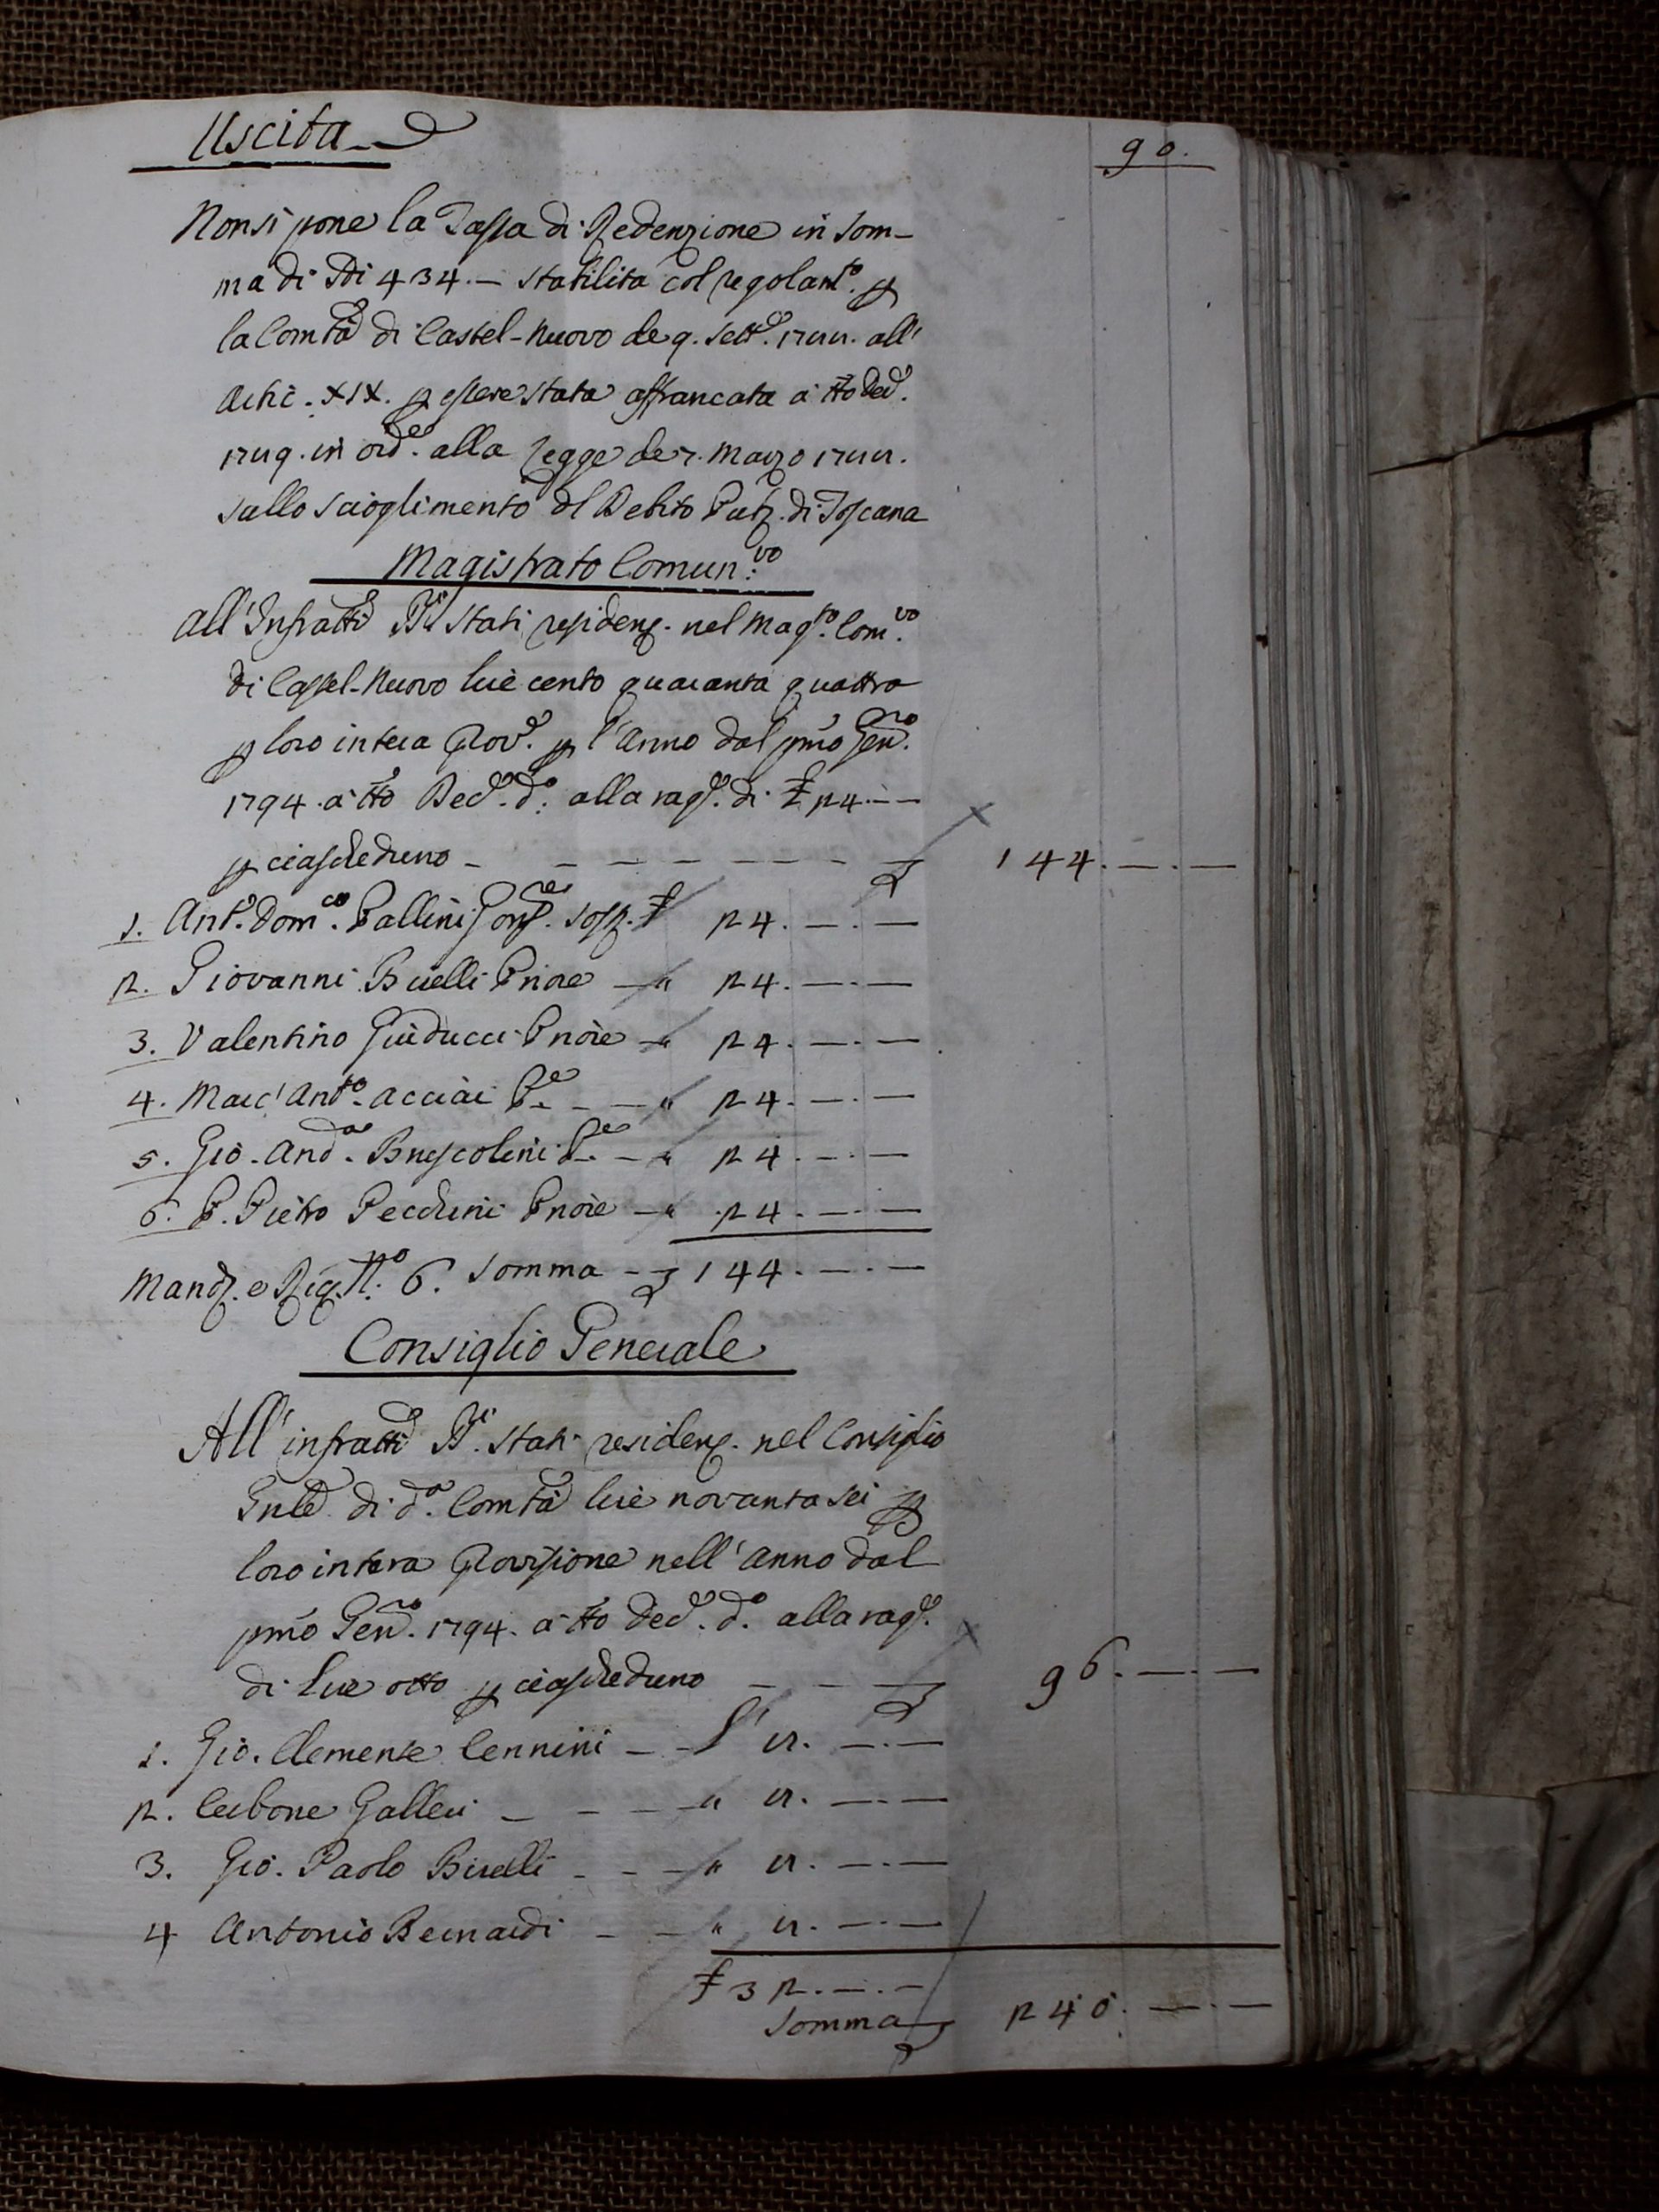 Uscita
90.
Non si pone la Tassa di Redenzione in Som-
ma di Sdi 434.— stabilita col regolamto. p
la Comtà di Castel-Nuovo de 9. Sette. 1788. all'
Artic. XIX. p essere stata affrancata a tto Dece.
1789. in orde. alla Legge de 7. Marzo 1788.
sullo scioglimento del Debito Pub. di Toscana
Magistrato Comun:vo
All'Infratti SSri Stati residenz. nel Magto. Comvo.
di Castel-Nuovo lire cento quaranta quattro
p loro intera Prove. p l'Anno dal pmo Genro.
1794. a tto Dece. do. alla rage. di £ 24.—.—
p ciascheduno — — — — — — — £ 144.—.—
1. Anto. Domco. Pallini Gonfre. sosp. £ 24.—.—
2. Giovanni Birelli Priore — " 24.—.—
3. Valentino Guiducci Priore — " 24.—.—
4. Marc'Anto. Acciai Pre. — — " 24.—.—
5. Gio. Anda. Brescolini Pre. — " 24.—.—
6. P. Pietro Pecchini Priore — " 24.—.—
Mand. e Rig. No. 6. Somma — £ 144.—.—
Consiglio Generale
All'infratti SSri. Stati residenz. nel Consiglio
Gnle di da. Comtà lire novanta sei p
loro intera Provisione nell'Anno dal
pmo Genro. 1794. a tto Dece. do. alla rage.
di lire otto p ciascheduno — — — £ 96.—.—
1. Gio. Clemente Cennini — — £ 8.—.—
2. Cerbone Galleri — — — " 8.—.—
3. Gio. Paolo Birelli — — — " 8.—.—
4 Antonio Bernardi — — " 8.—.—
£ 32.—.—
Somma £ 240.—.—